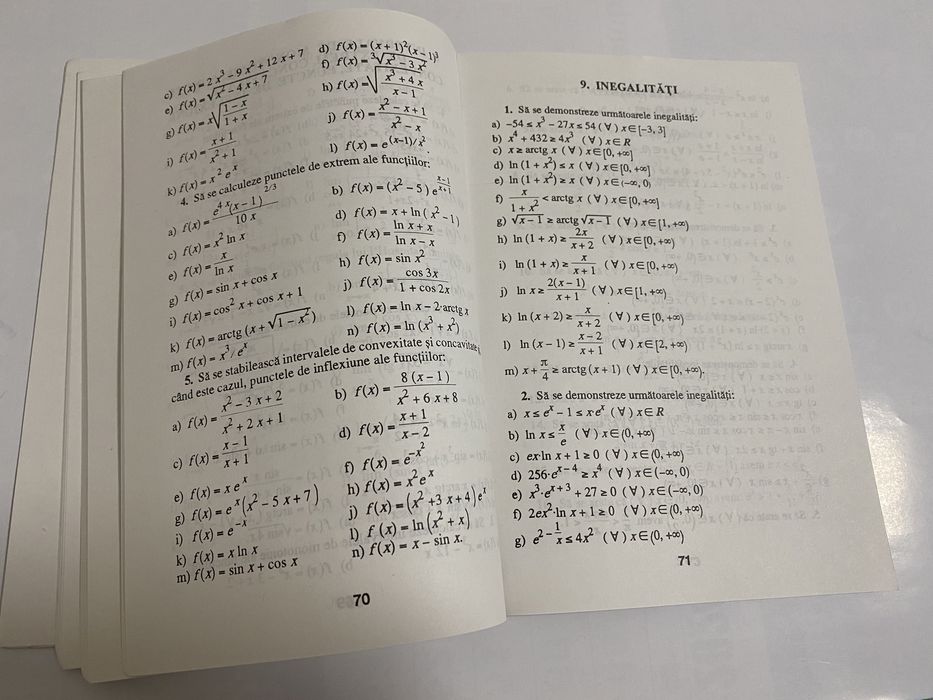 c) f(x) = 2 x³ − 9 x² + 12 x + 7
d) f(x) = (x + 1)² (x − 1)³
e) f(x) = √(x² − 4 x + 7)
f) f(x) = ³√(x³ − 3 x²)
g) f(x) = x√((1 − x)/(1 + x))
h) f(x) = √((x³ + 4 x)/(x − 1))
i) f(x) = (x + 1)/(x² + 1)
j) f(x) = (x² − x + 1)/(x² − x)
k) f(x) = x² eˣ
l) f(x) = e^((x−1)/x²)
4. Să se calculeze punctele de extrem ale funcțiilor:
a) f(x) = (e^(4x) (x − 1)^(2/3))/(10 x)
b) f(x) = (x² − 5) e^((x−1)/(x+1))
c) f(x) = x² ln x
d) f(x) = x + ln (x² − 1)
e) f(x) = x/(ln x)
f) f(x) = (ln x + x)/(ln x − x)
g) f(x) = sin x + cos x
h) f(x) = sin x²
i) f(x) = cos² x + cos x + 1
j) f(x) = (cos 3x)/(1 + cos 2x)
k) f(x) = arctg (x + √(1 − x²))
l) f(x) = ln x − 2·arctg x
m) f(x) = x³ / eˣ
n) f(x) = ln (x³ + x²)
5. Să se stabilească intervalele de convexitate și concavitate
când este cazul, punctele de inflexiune ale funcțiilor:
a) f(x) = (x² − 3 x + 2)/(x² + 2 x + 1)
b) f(x) = (8 (x − 1))/(x² + 6 x + 8)
c) f(x) = (x − 1)/(x + 1)
d) f(x) = (x + 1)/(x − 2)
e) f(x) = x eˣ
f) f(x) = e^(−x²)
g) f(x) = eˣ (x² − 5 x + 7)
h) f(x) = x² eˣ
i) f(x) = e^(−x)
j) f(x) = (x² + 3 x + 4) eˣ
k) f(x) = x ln x
l) f (x) = ln (x² + x)
m) f(x) = sin x + cos x
n) f(x) = x − sin x.
70
9. INEGALITĂȚI
1. Să se demonstreze următoarele inegalități:
a) −54 ≤ x³ − 27x ≤ 54 (∀) x∈[−3, 3]
b) x⁴ + 432 ≥ 4x³ (∀) x∈R
c) x ≥ arctg x (∀) x∈[0, +∞]
d) ln (1 + x²) ≤ x (∀) x∈[0, +∞]
e) ln (1 + x²) ≥ x (∀) x∈(−∞, 0)
f) x/(1 + x²) < arctg x (∀) x∈[0, +∞]
g) √(x − 1) ≥ arctg √(x − 1) (∀) x∈[1, +∞)
h) ln (1 + x) ≥ 2x/(x + 2) (∀) x∈[0, +∞)
i) ln (1 + x) ≥ x/(x + 1) (∀) x∈[0, +∞)
j) ln x ≥ 2(x − 1)/(x + 1) (∀) x∈[1, +∞)
k) ln (x + 2) ≥ x/(x + 2) (∀) x∈[0, +∞)
l) ln (x − 1) ≥ (x − 2)/(x + 1) (∀) x∈[2, +∞)
m) x + π/4 ≥ arctg (x + 1) (∀) x∈[0, +∞)
2. Să se demonstreze următoarele inegalități:
a) x ≤ eˣ − 1 ≤ x·eˣ (∀) x∈R
b) ln x ≤ x/e (∀) x∈(0, +∞)
c) ex·ln x + 1 ≥ 0 (∀) x∈(0, +∞)
d) 256·e^(x − 4) ≥ x⁴ (∀) x∈(−∞, 0)
e) x³·e^(x + 3) + 27 ≥ 0 (∀) x∈(−∞, 0)
f) 2ex²·ln x + 1 ≥ 0 (∀) x∈(0, +∞)
g) e^(2 − 1/x) ≤ 4x² (∀) x∈(0, +∞)
71